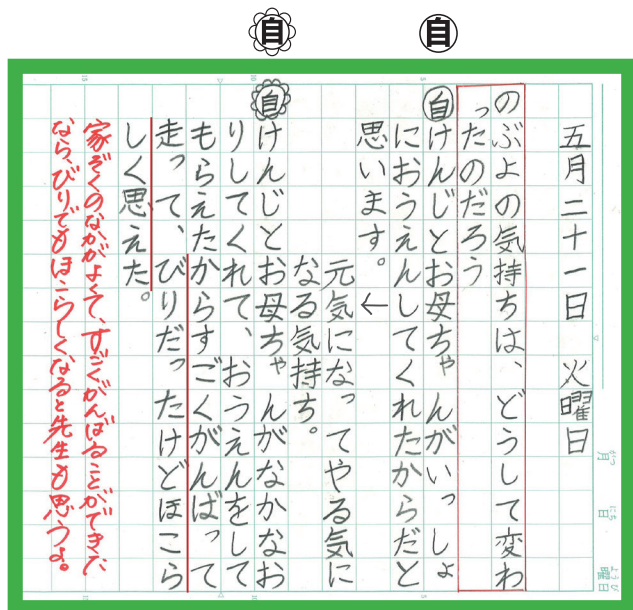 自
自
五月二十一日 火曜日
のぶよの気持ちは、どうして変わ
ったのだろう
自けんじとお母ちゃんがいっしょ
におうえんしてくれたからだと
思います。
↓
元気になってやる気に
なる気持ち。
自けんじとお母ちゃんがなかなお
りしてくれて、おうえんをして
もらえたからすごくがんばって
走って、びりだったけどほこら
しく思えた。
家ぞくのなかがよくて、すごくがんばることができた
なら、びりでもほこらしくなると先生も思うよ。
がつ
月
にち
日
ようび
曜日
5
10
15
5
10
15